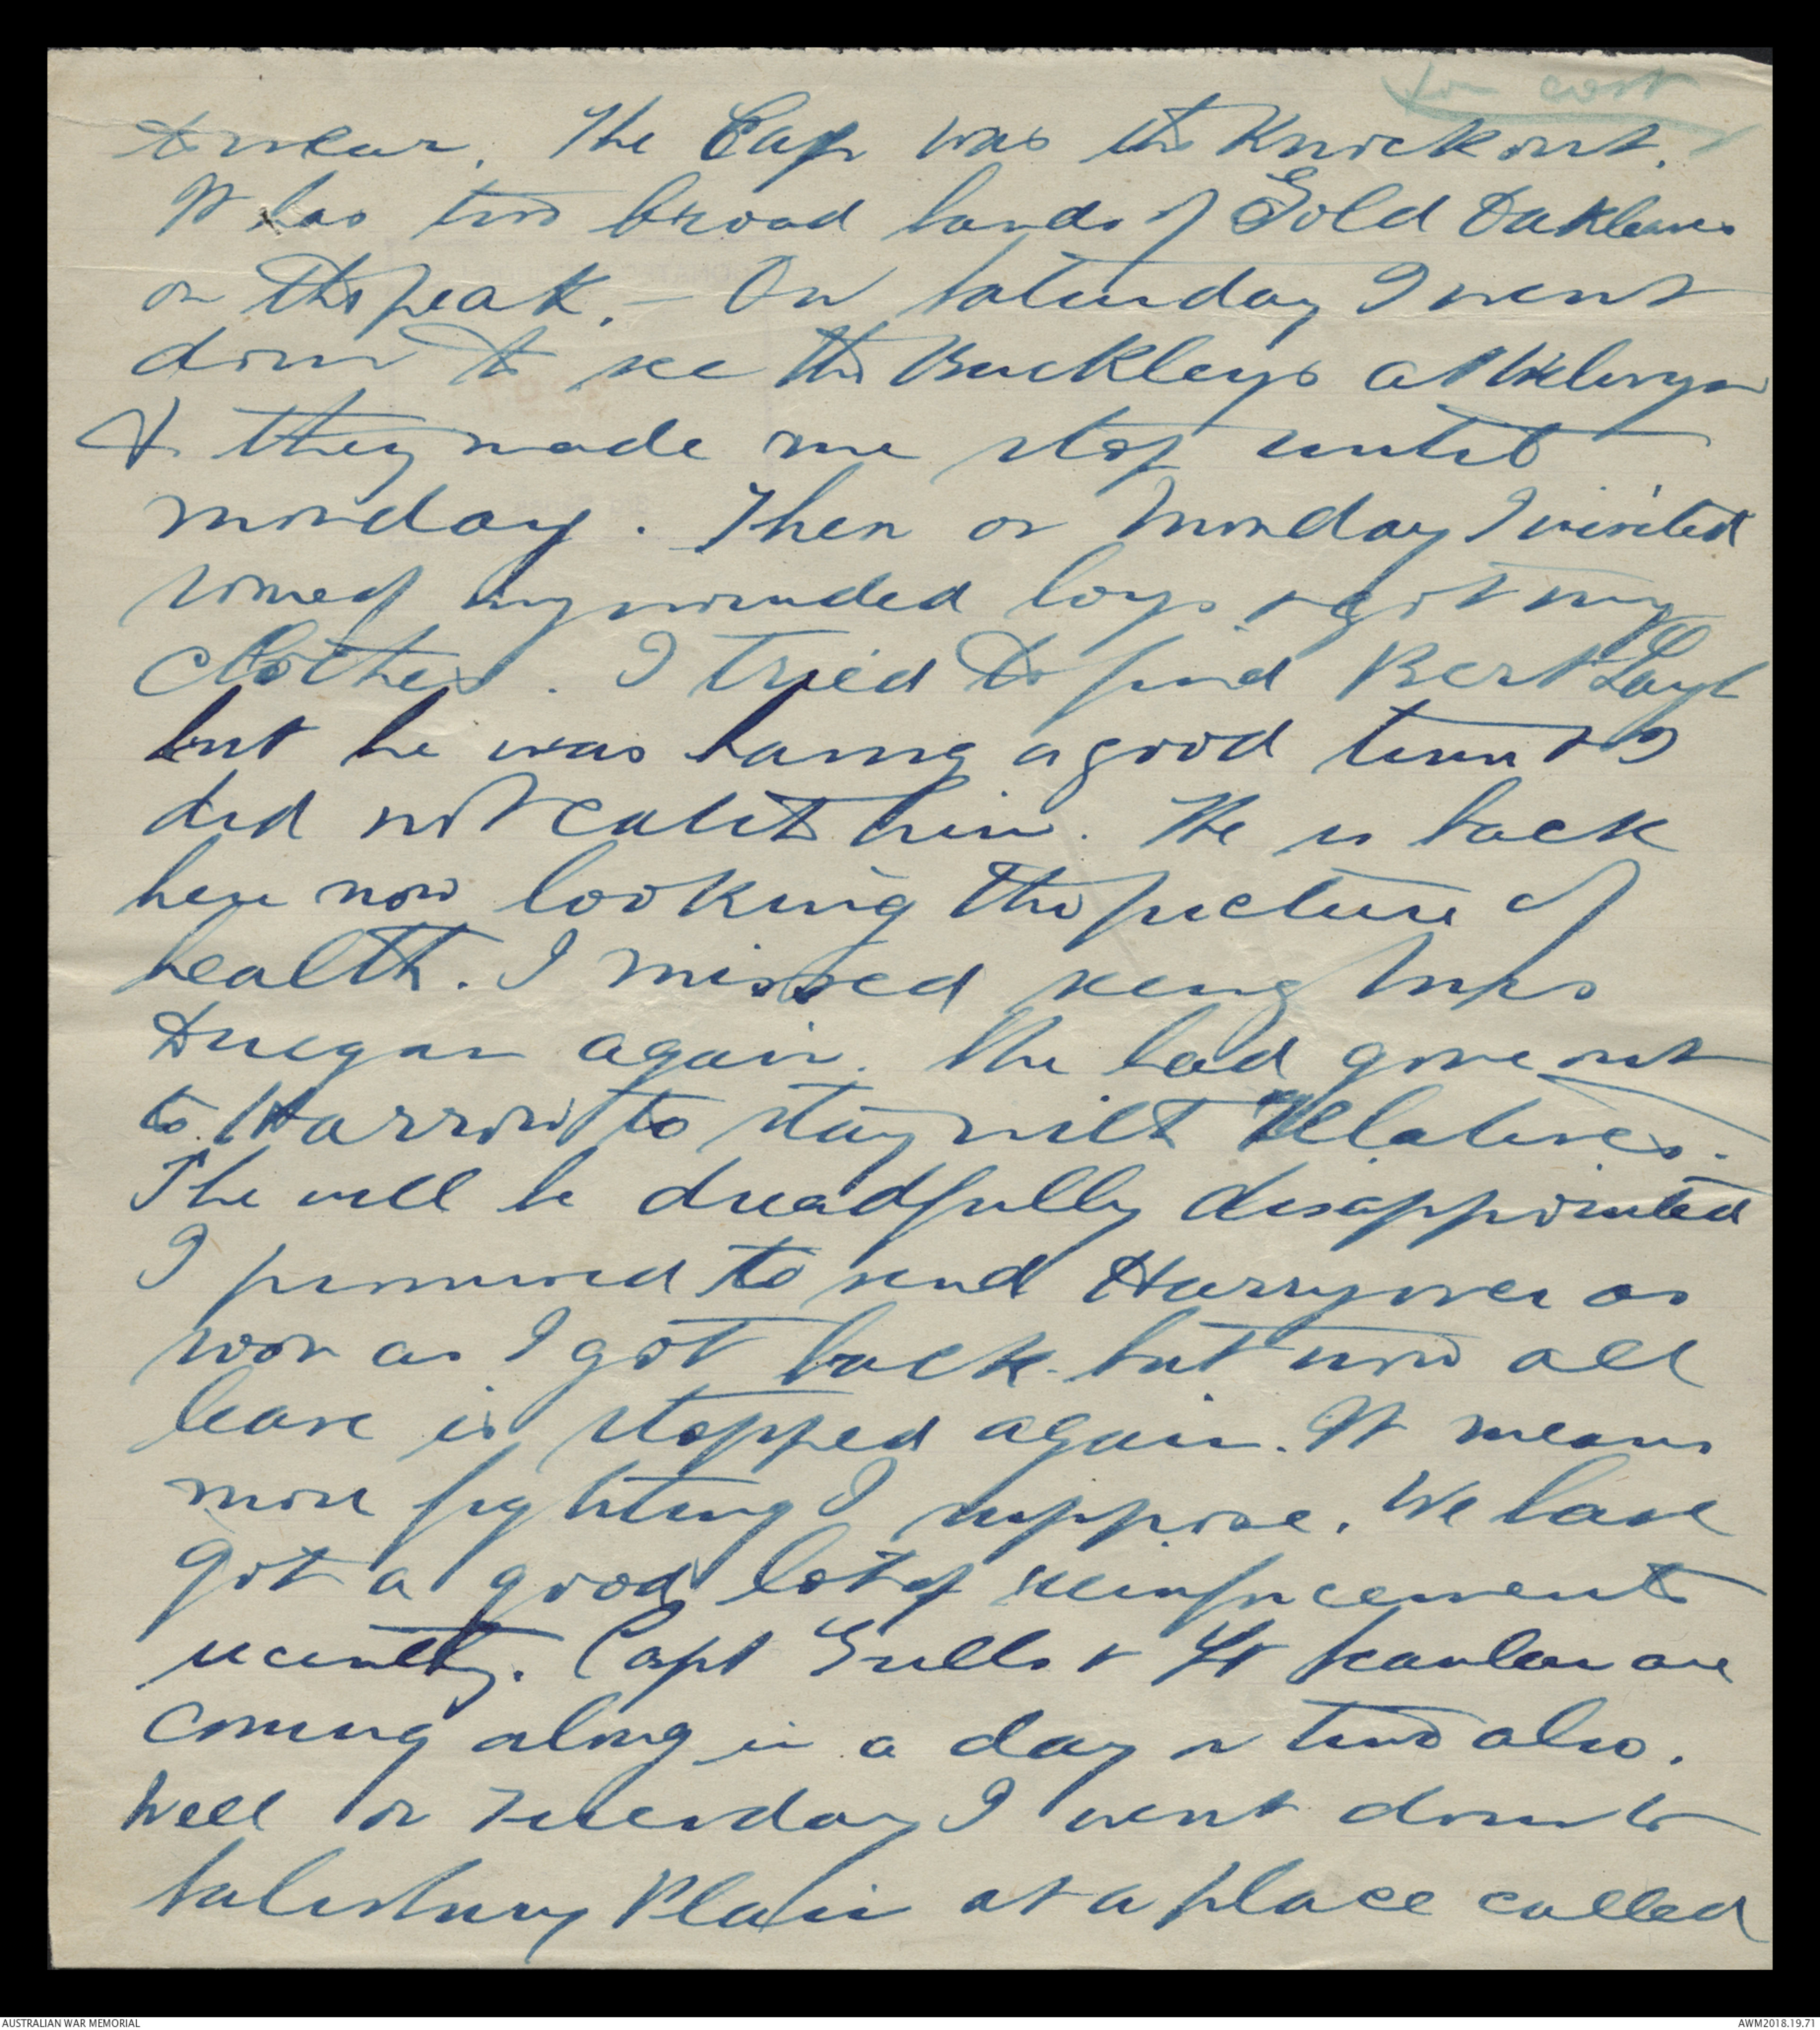 to wear. The Cap was the Knockout.
It has two broad bands of Gold Oakleaves
on the peak. – On Saturday I went
down to see the Buckleys at Welwyn
& they made me stop until
Monday. Then on Monday I visited
some of my wounded boys & got my
clothes. I tried to find Bert Layh
but he was having a good time & I
did not catch him. He is back
here now looking the picture of
health. I missed seeing Mrs
Duigan again. She had gone out
to Harrow to stay with Relatives.
She will be dreadfully disappointed
I promised to send Harry over as
soon as I got back but now all
leave is stopped again. It means
more fighting I suppose. We have
got a good lot of reinforcements
recently. Capt & Lt Scanlan are
coming along in a day or two also.
Well on Tuesday I went down to
Salisbury Plain at a place called
AUSTRALIAN WAR MEMORIAL
AWM2018.19.71